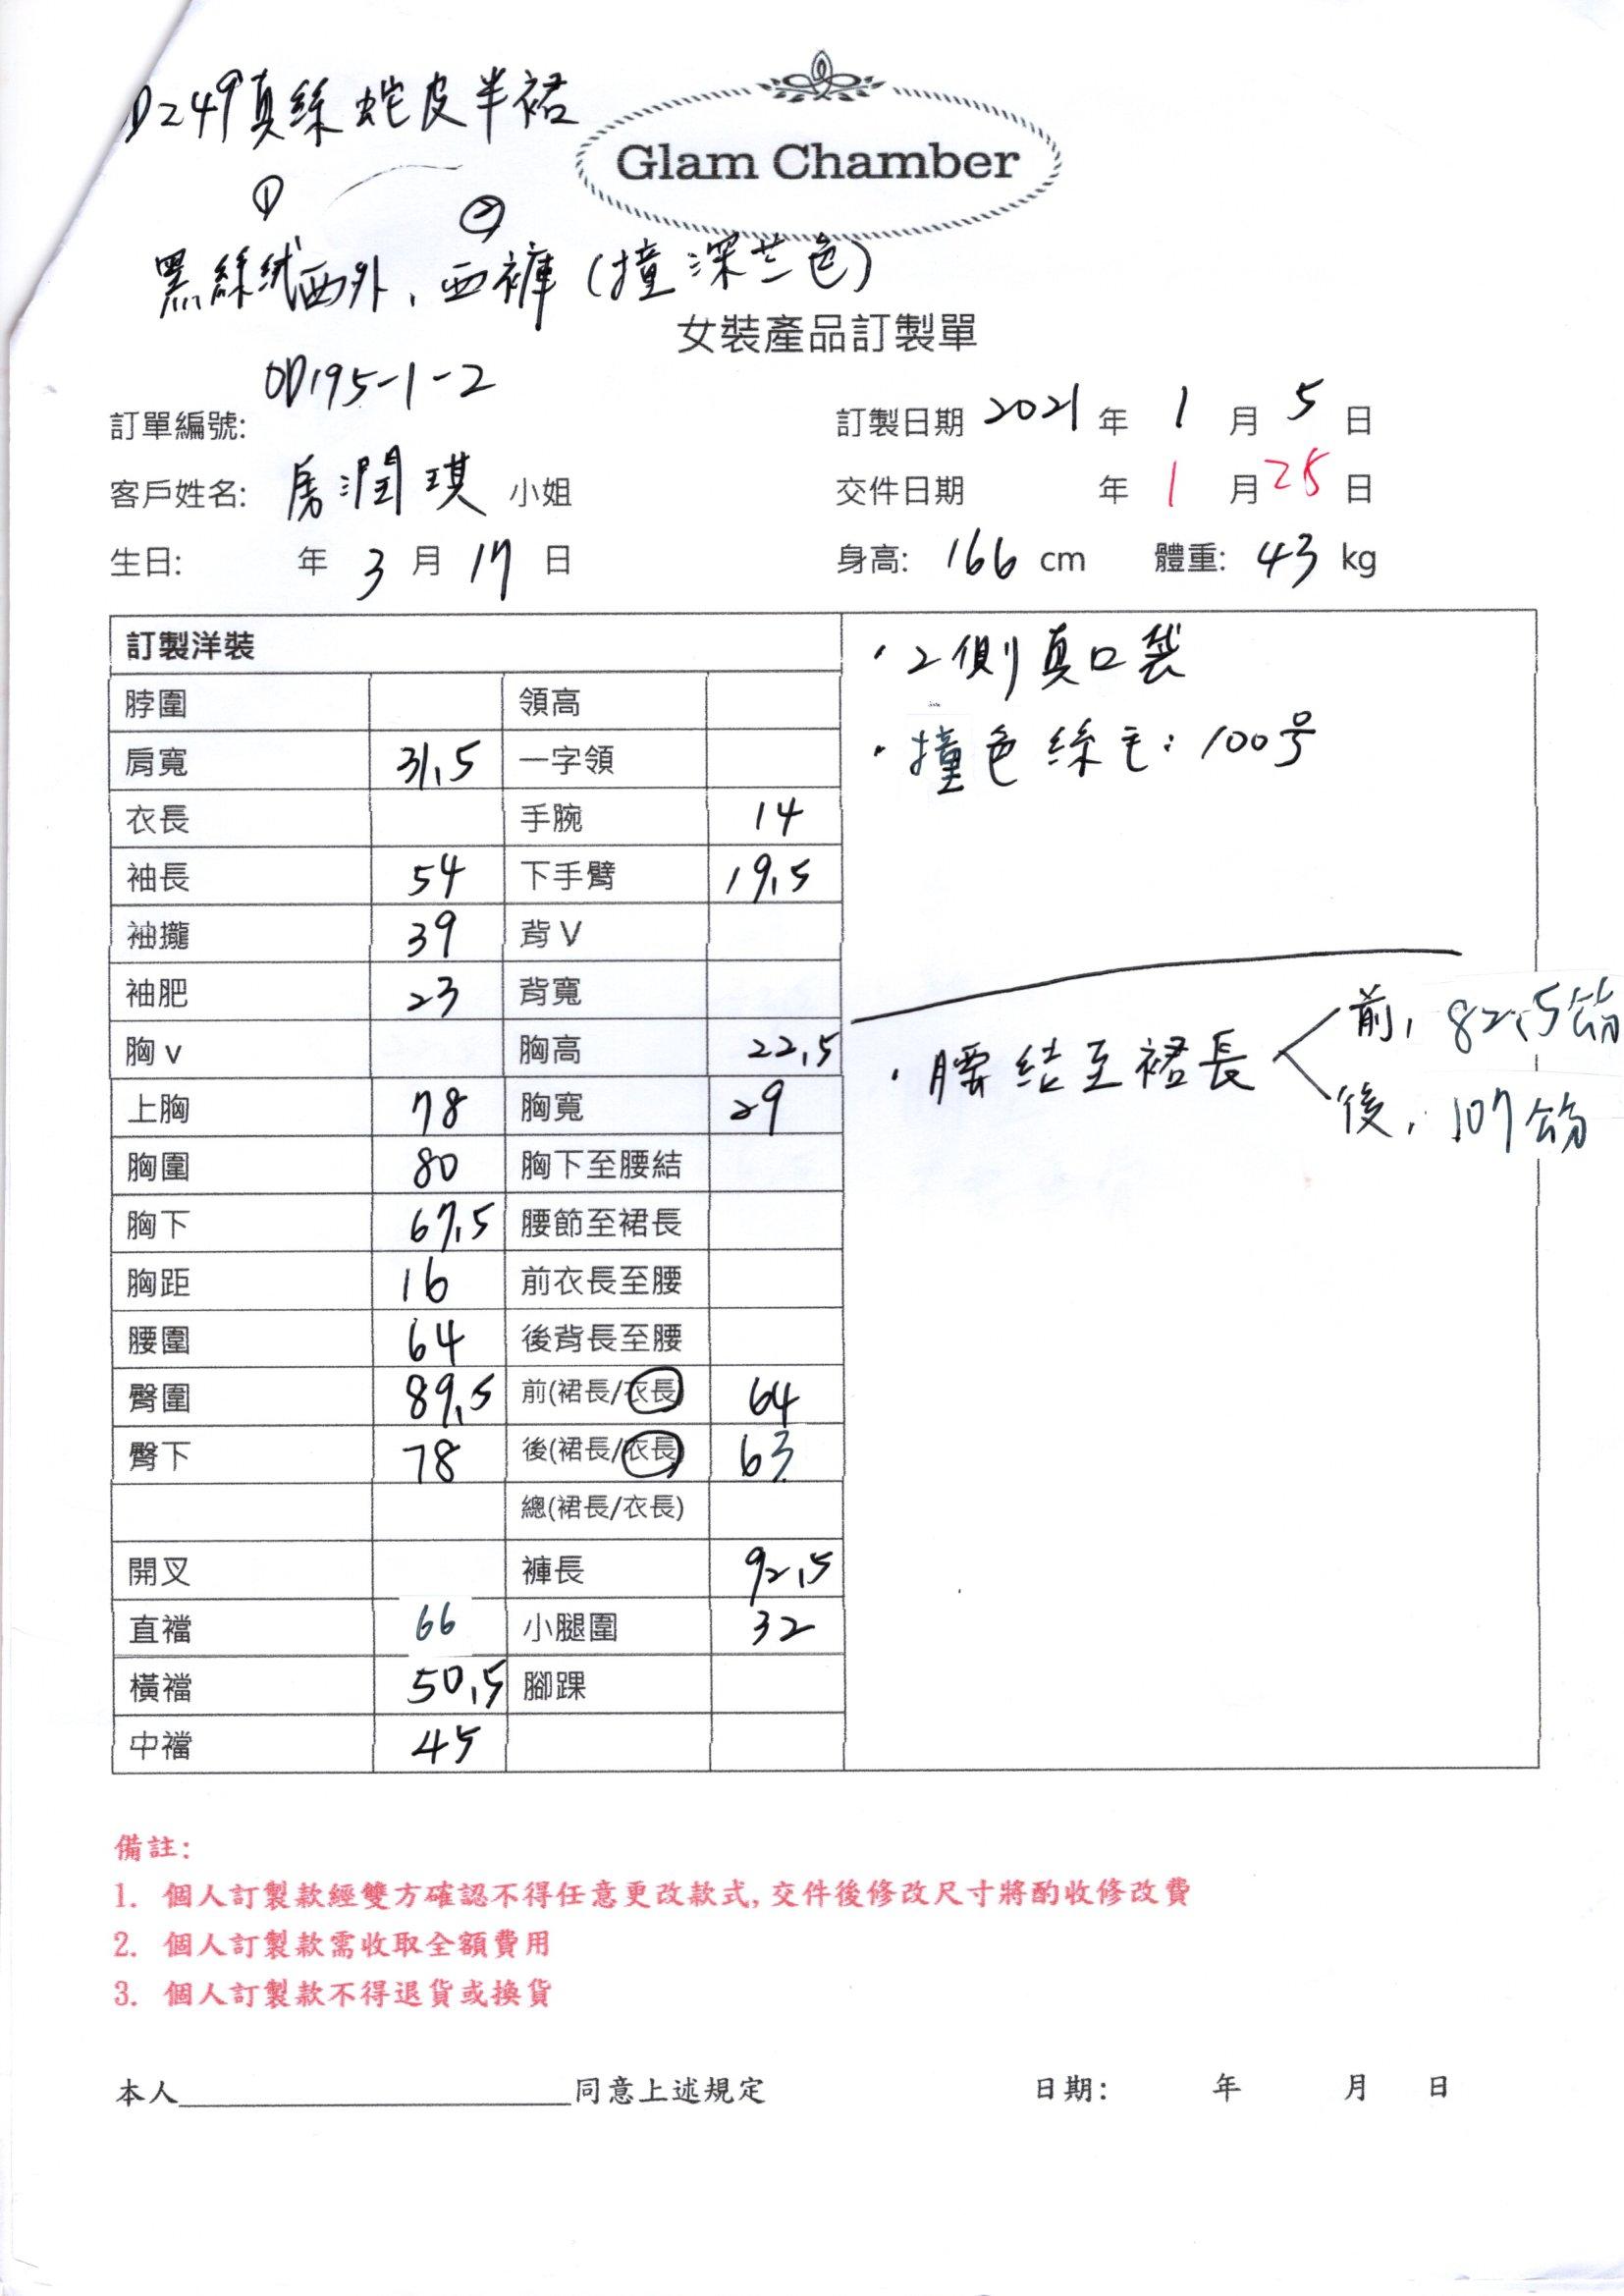 D249真絲蛇皮半裙
Glam Chamber
① ②
黑絲絨西外、西褲(撞深芒色)
女裝產品訂製單
訂單編號: OD195-1-2 訂製日期 2021 年 1 月 5 日
客戶姓名: 房潤琪 小姐 交件日期 年 1 月 25 日
生日: 年 3 月 17 日 身高: 166 cm 體重: 43 kg
訂製洋裝
脖圍 領高
肩寬 31.5 一字領
衣長 手腕 14
袖長 54 下手臂 19.5
袖攏 39 背V
袖肥 23 背寬
胸v 胸高 22.5
上胸 78 胸寬 29
胸圍 80 胸下至腰結
胸下 67.5 腰節至裙長
胸距 16 前衣長至腰
腰圍 64 後背長至腰
臀圍 89.5 前(裙長/衣長) 64
臀下 78 後(裙長/衣長) 63
總(裙長/衣長)
開叉 褲長 92.5
直襠 66 小腿圍 32
橫襠 50.5 腳踝
中襠 45
·2側真口袋
·撞色絲毛:100号
·腰结至裙長
前, 82.5
後, 107
備註:
1. 個人訂製款經雙方確認不得任意更改款式,交件後修改尺寸將酌收修改費
2. 個人訂製款需收取全額費用
3. 個人訂製款不得退貨或換貨
本人____________________同意上述規定 日期: 年 月 日